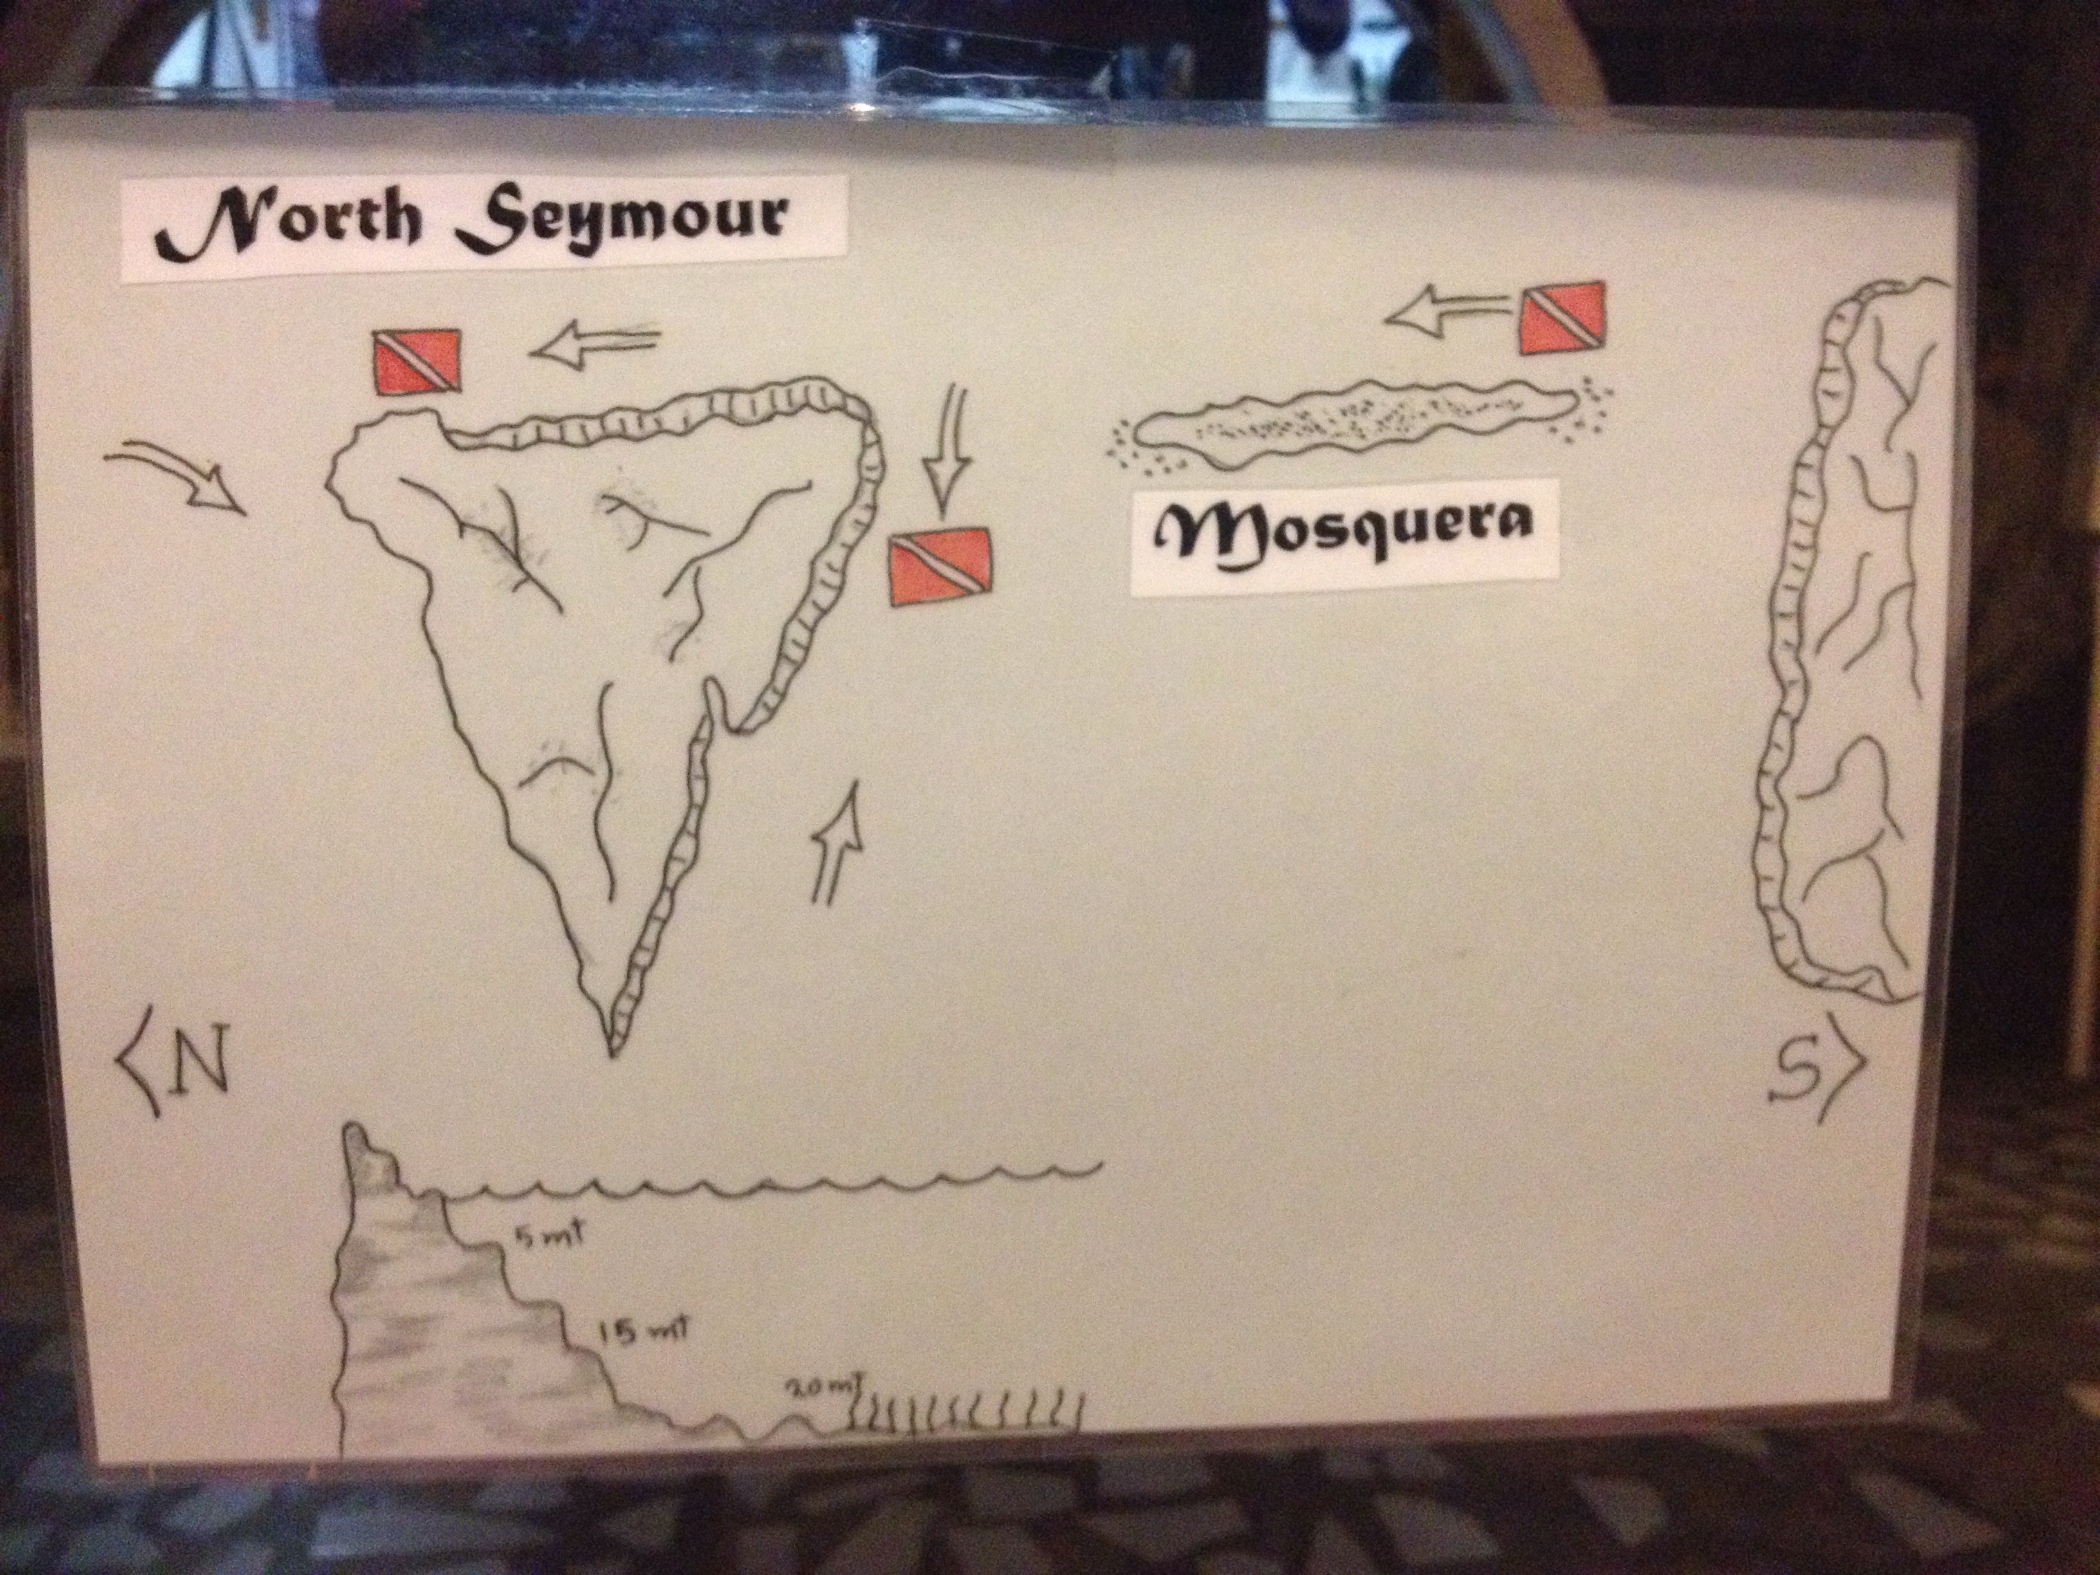 North Seymour
Mosquera
<N
S>
5 mt
15 mt
20 mt